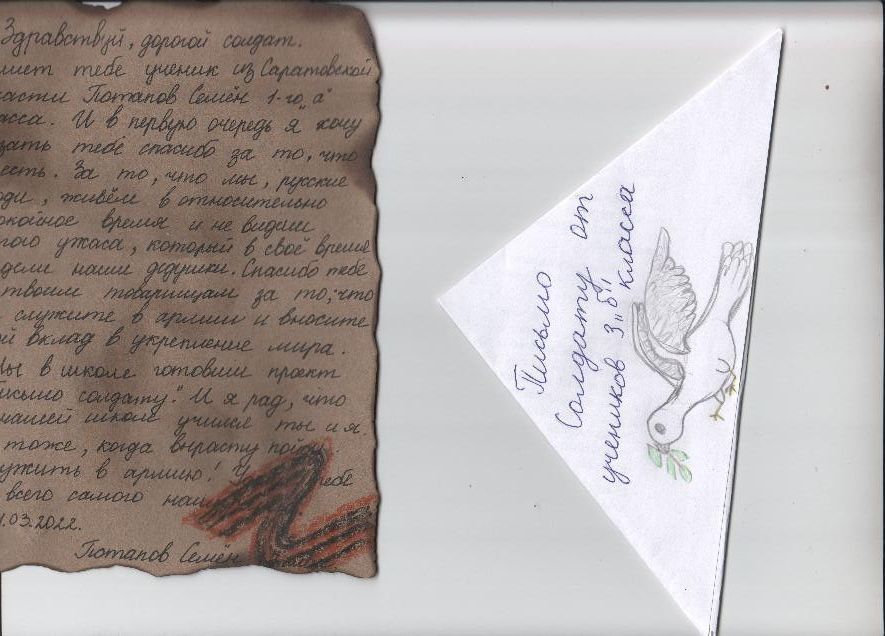 Здравствуй, дорогой солдат.
шет тебе ученик из Саратовской
асти Потапов Семён 1-го „а"
асса. И в первую очередь я хочу
зать тебе спасибо за то, что
есть. За то, что мы, русские
юди, живём в относительно
окойное время и не видим
того ужаса, который в своё время
дели наши дедушки. Спасибо тебе
твоим товарищам за то, что
служите в армии и вносите
й вклад в укрепление мира.
Мы в школе готовим проект
исьмо солдату." И я рад, что
нашей школе учился ты и я.
тоже, когда вырасту пойду
ужить в армию! ебе
всего самого наи
.03.2022.
Потапов Семён
Письмо
Солдату от
учеников 3 „Б"
класса